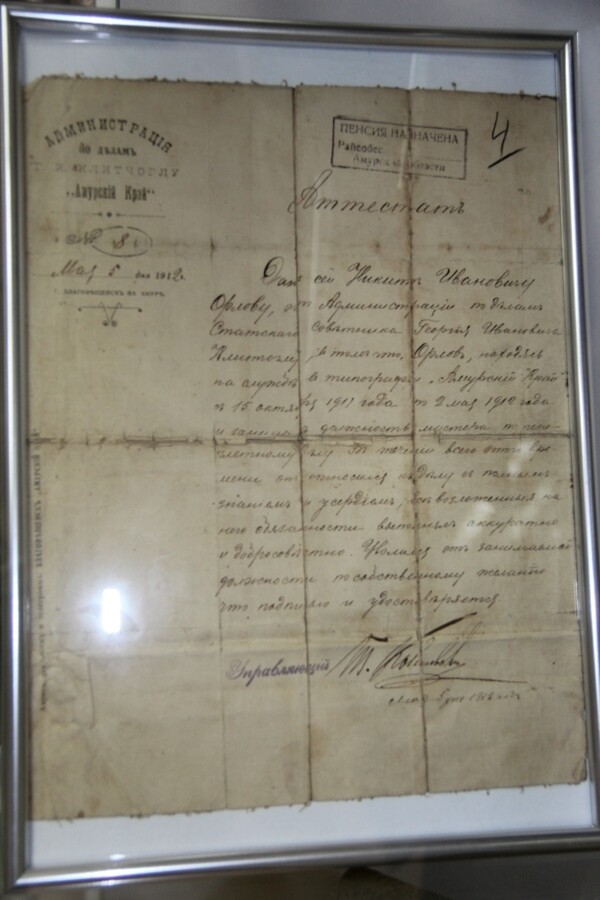 АДМИНИСТРАЦІЯ
по дѣламъ
КЛИТЧОГЛУ
„Амурскій Край“
№ 8
Мая 5 дня 1912 г.
г. БЛАГОВѢЩЕНСКЪ НА АМУРѢ.
ПЕНСИЯ НАЗНАЧЕНА
Райсобес
Амурской области
4
Аттестатъ
Данъ сей Никитѣ Ивановичу
Орлову, отъ Администраціи по дѣламъ
Статскаго Совѣтника Георгія Ивановича
въ томъ что, Орловъ, находясь
на службѣ въ типографіи „Амурскій Край“
съ 15 октября 1911 года по 2 мая 1912 года
и занималъ должность мастера по пере-
плетному дѣлу. Въ теченіи всего этого вре-
мени относился къ дѣлу съ полнымъ
знаніемъ и усердіемъ, всѣ возложенныя на
него обязанности выполнялъ аккуратно
и добросовѣстно. Уволился отъ занимаемой
должности по собственному желанію
что подписью и удостовѣряется
Управляющій